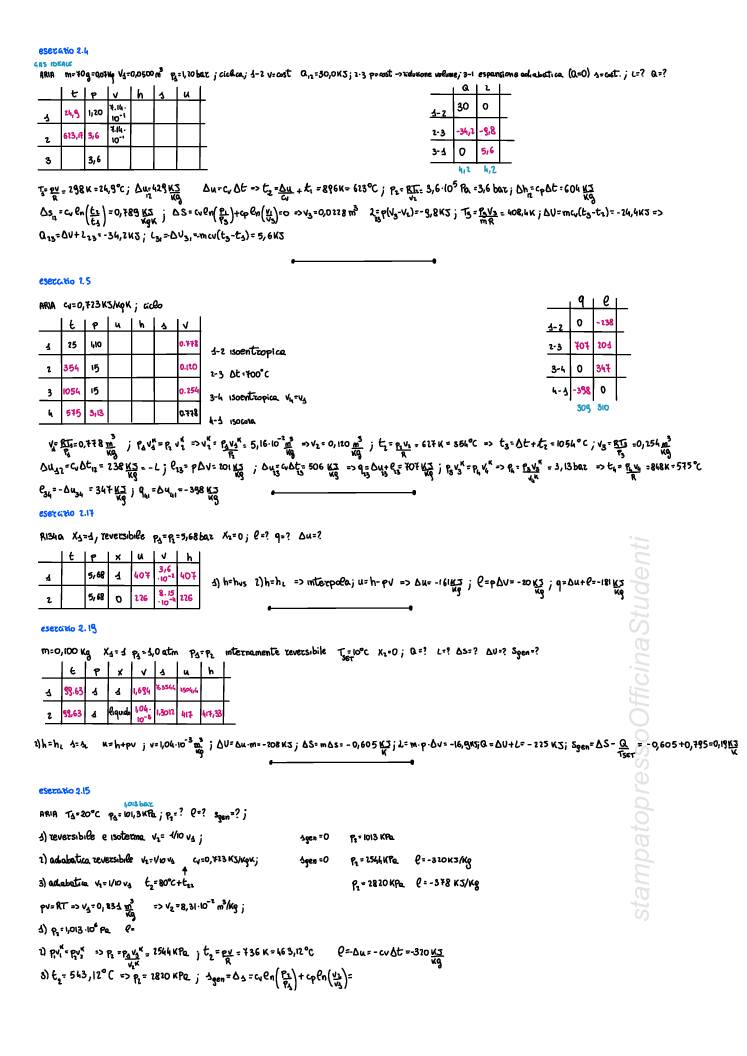 esercizio 2.4
GAS IDEALE
ARIA m=70g=0,07Kg V₁=0,0500 m³ p₁=1,20 bar ; ciclica ; 1-2 v=cost Q₁₂=30,0KJ ; 2-3 p=cost → riduzione volume ; 3-1 espansione adiabatica (Q=0) s=cost. ; L=? Q=?
t p v h s u
1 24,9 1,20 7.14·10⁻¹
2 623,17 3,6 7.14·10⁻¹
3 3,6
Q L
1-2 30 0
2-3 -34,2 -9,8
3-1 0 5,6
4,2 4,2
T₁=pv/R=298K=24,9°C ; Δu₁₂=429 KJ/Kg Δu=cᵥΔt ⇒ t₂=Δu/cᵥ+t₁=896K=623°C ; p₂=RT₂/v₂=3,6·10⁵ Pa=3,6 bar ; Δh₁₂=cpΔt=604 KJ/Kg
Δs₁₂=cᵥln(t₂/t₁)=0,789 KJ/KgK ; ΔS=cᵥln(p₁/p₃)+cp ln(v₁/v₃)=0 ⇒ v₃=0,0228 m³ L₂₃=p(V₃-V₂)=-9,8KJ ; T₃=p₃V₃/mR=408,4K ; ΔU=mcᵥ(t₃-t₂)=-24,4KJ ⇒
Q₂₃=ΔU+L₂₃=-34,2KJ ; L₃₁=-ΔU₃₁=-mcᵥ(t₃-t₁)=5,6KJ
esercizio 2.5
ARIA cᵥ=0,723KJ/KgK ; ciclo
t p u h s v
1 25 110 0.778
2 354 15 0.120
3 1054 15 0.254
4 575 3,13 0.778
1-2 isoentropica
2-3 Δt=700°C
3-4 isoentropica v₄=v₁
4-1 isocora
q ℓ
1-2 0 -238
2-3 707 201
3-4 0 347
4-1 -398 0
309 310
v₁=RT₁/p₁=0,778 m³/Kg ; p₁v₁ᴷ=p₂v₂ᴷ ⇒ v₂ᴷ=p₁v₁ᴷ/p₂=5,16·10⁻² m³/Kg ⇒ v₂=0,120 m³/Kg ; t₂=p₂v₂/R=627K=354°C ⇒ t₃=Δt+t₂=1054°C ; v₃=RT₃/p₃=0,254 m³/Kg
Δu₁₂=cᵥΔt₁₂=238 KJ/Kg=-L ; ℓ₂₃=pΔv=201 KJ/Kg ; Δu₂₃=cᵥΔt₂₃=506 KJ/Kg ⇒ q₂₃=Δu₂₃+ℓ₂₃=707 KJ/Kg ; p₃v₃ᴷ=p₄v₄ᴷ ⇒ p₄=p₃v₃ᴷ/v₄ᴷ=3,13bar ⇒ t₄=p₄v₄/R=848K=575°C
ℓ₃₄=-Δu₃₄=347 KJ/Kg ; q₄₁=Δu₄₁=-398 KJ/Kg
esercizio 2.17
R134a X₁=1, reversibile p₁=p₂=5,68bar X₂=0 ; ℓ=? q=? Δu=?
t p x u v h
1 5,68 1 407 3,6·10⁻² 407
2 5,68 0 226 8.15·10⁻⁴ 226
1) h=hvs 2) h=hL ⇒ interpola ; u=h-pv ⇒ Δu=-161 KJ/Kg ; ℓ=pΔv=-20 KJ/Kg ; q=Δu+ℓ=-181 KJ/Kg
esercizio 2.19
m=0,100 Kg X₁=1 p₁=1,0 atm p₁=p₂ internamente reversibile T_SET=10°C X₂=0 ; Q=? L=? ΔS=? ΔU=? Sgen=?
t p x v s u h
1 99.63 1 1 1,694
2 99.63 1 liquido 1.04·10⁻³ 1.3012 417 417,33
2) h=hL s=sL u=h+pv ; v=1,04·10⁻³ m³/Kg ; ΔU=Δu·m=-208KJ ; ΔS=mΔs=-0,605 KJ/K ; L=m·p·Δv=-16,9KJ ; Q=ΔU+L=-225 KJ ; Sgen=ΔS-Q/T_SET=-0,605+0,795=0,19 KJ/K
esercizio 2.15
1.013 bar
ARIA T₁=20°C p₁=101,3KPa ; p₂=? ℓ=? sgen=? ;
1) reversibile e isoterma v₂=1/10 v₁ ; sgen=0 p₂=1013 KPa
2) adiabatica reversibile v₂=1/10 v₁ cᵥ=0,723 KJ/KgK ; sgen=0 p₂=2544KPa ℓ=-320KJ/Kg
3) adiabatica v₂=1/10 v₁ t₂=80°C+t₂₍₂₎ p₂=2820KPa ℓ=-378 KJ/Kg
pv=RT ⇒ v₁=0,831 m³/Kg ⇒ v₂=8,31·10⁻² m³/Kg ;
1) p₂=1,013·10⁶ Pa ℓ=
2) p₁v₁ᴷ=p₂v₂ᴷ ⇒ p₂=p₁v₁ᴷ/v₂ᴷ=2544KPa ; t₂=pv/R=736K=463,12°C ℓ=-Δu=-cᵥΔt=-320 KJ/Kg
3) t₂=543,12°C ⇒ p₂=2820KPa ; sgen=Δs=cᵥln(p₂/p₁)+cp ln(v₂/v₁)=
stampatopressoOfficinaStudenti